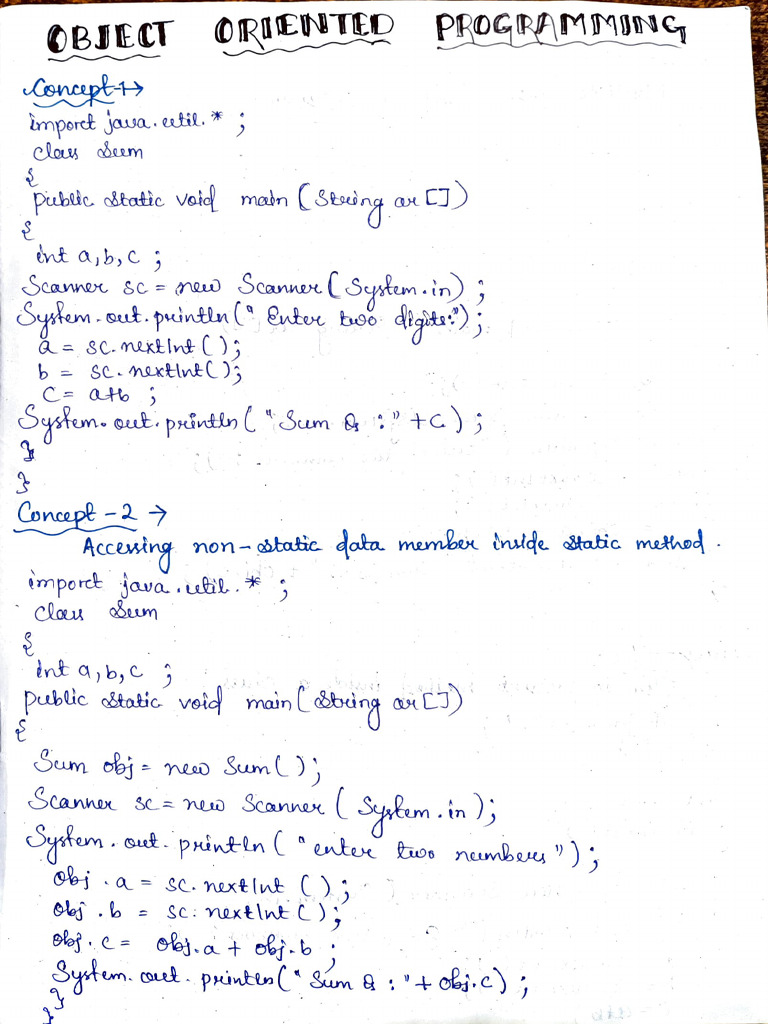 OBJECT ORIENTED PROGRAMMING
Concept-1→
import java.util.* ;
class Sum
{
public static void main (String ar [])
{
int a,b,c ;
Scanner sc = new Scanner (System.in) ;
System.out.println (" Enter two digits:");
a = sc.nextInt ();
b = sc.nextInt();
C = a+b ;
System.out.println ( "Sum is :" +c) ;
}
}
Concept -2 →
Accessing non-static data member inside static method.
import java.util.* ;
class Sum
{
int a,b,c ;
public static void main (String ar [])
{
Sum obj = new Sum();
Scanner sc = new Scanner ( System.in);
System.out.println ( "enter two numbers");
obj .a = sc.nextInt ();
obj .b = sc.nextInt ();
obj.c = obj.a + obj.b ;
System.out.println(" Sum is : "+ obj.c) ;
}
}